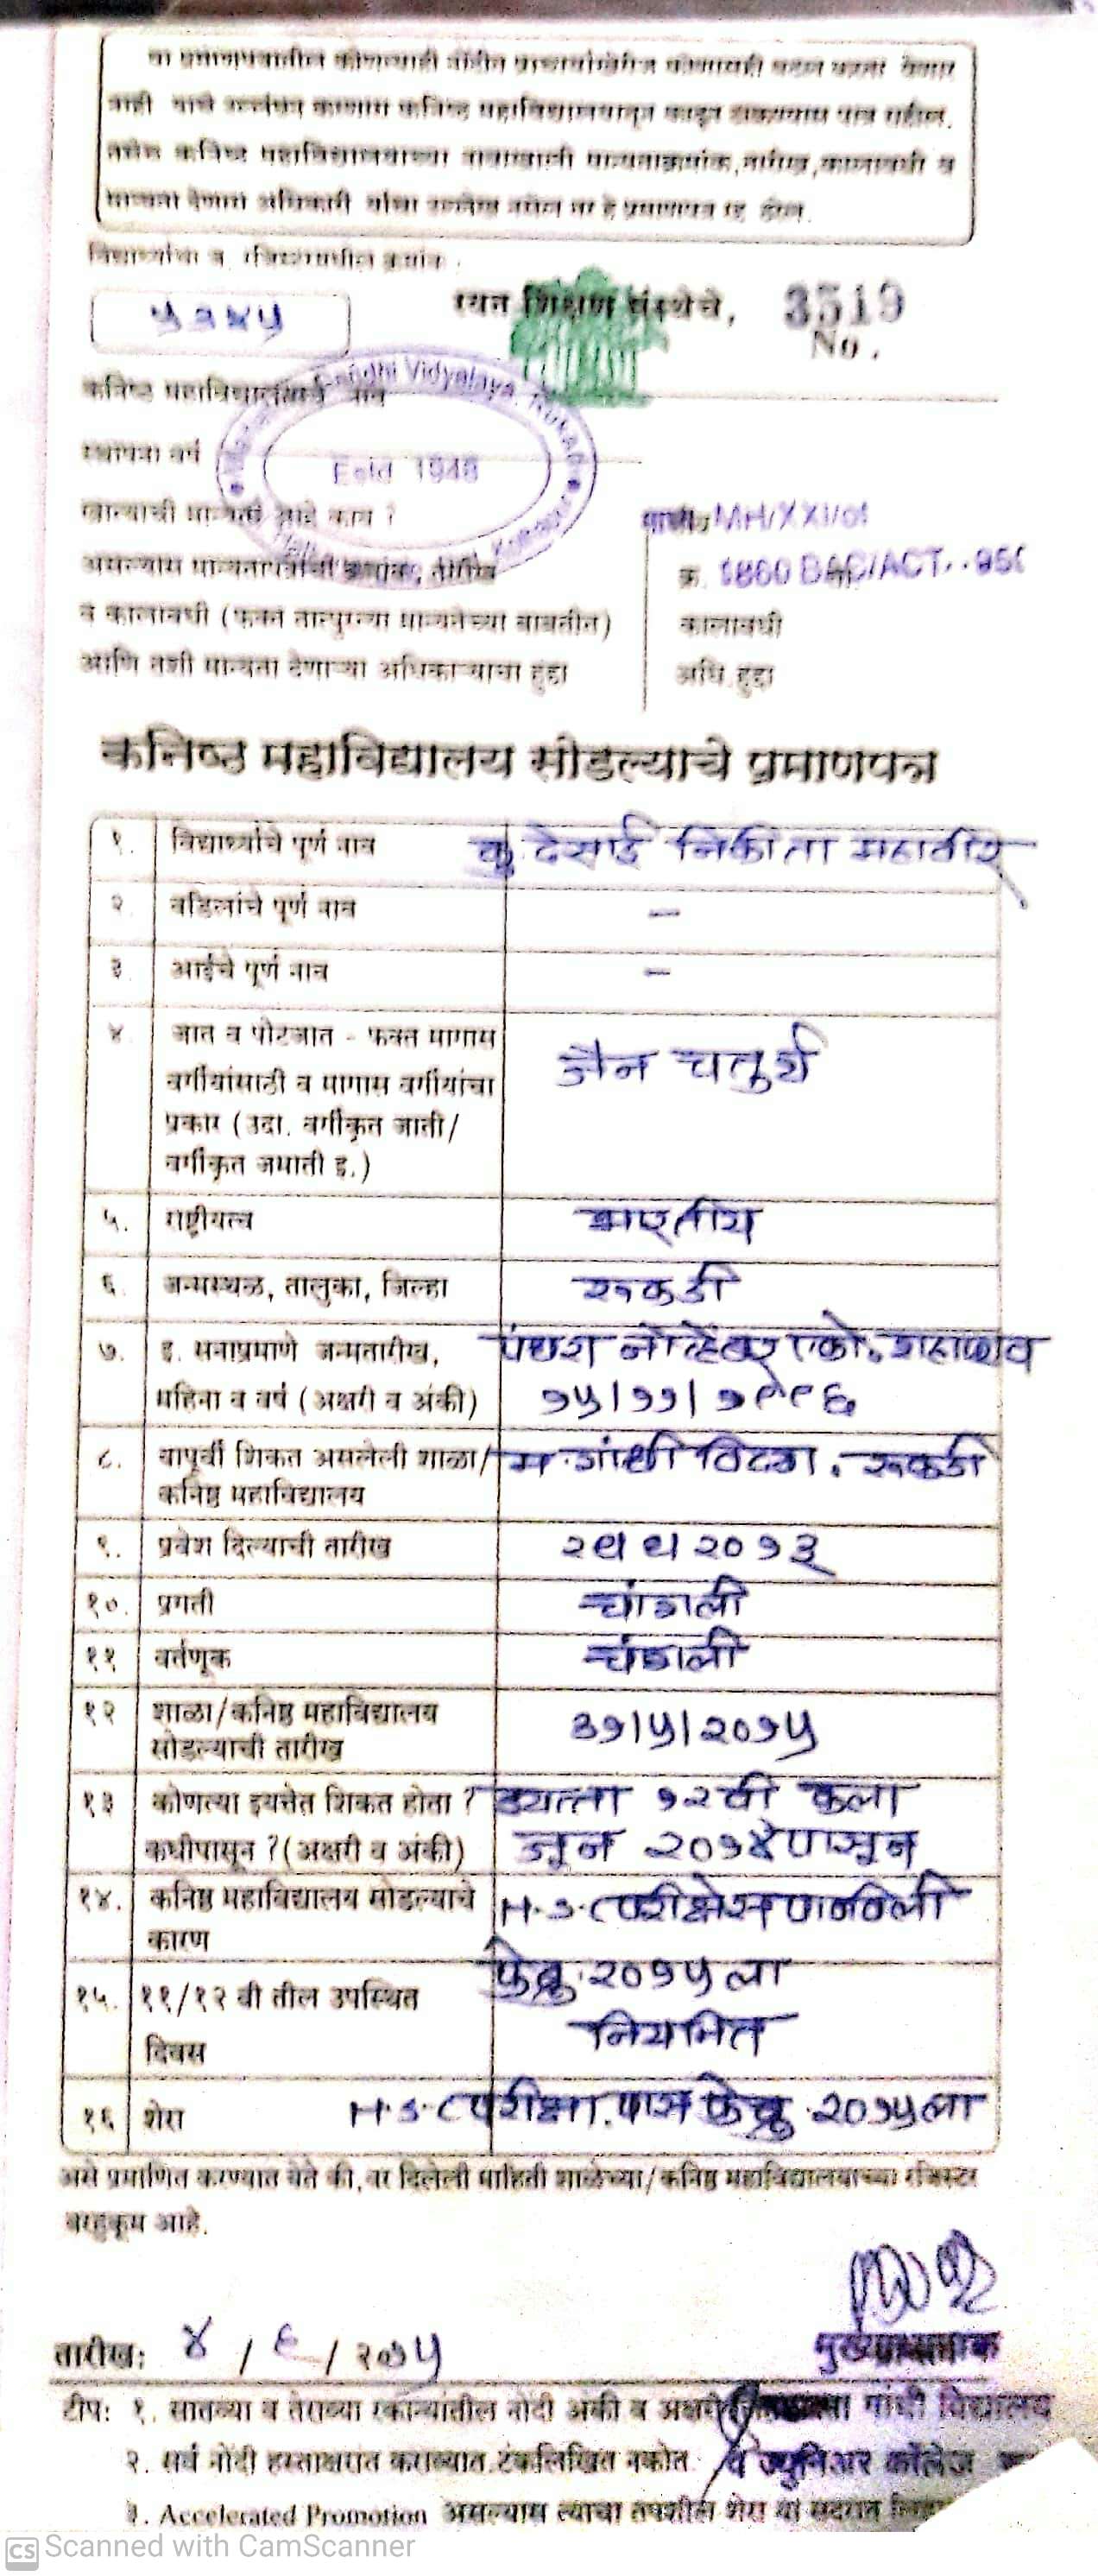 या प्रमाणपत्रातील कोणत्याही नोंदीत कोणताही बदल करता येणार
नाही याचे उल्लंघन करणारास कनिष्ठ महाविद्यालयातून काढून टाकण्यास पात्र राहील.
तसेच कनिष्ठ महाविद्यालयाच्या नावाखाली मान्यताक्रमांक, तारीख, कालावधी व
मान्यता देणारा अधिकारी यांचा उल्लेख नसेल तर हे प्रमाणपत्र रद्द होल.
विद्यार्थ्याचा व रजिस्टरमधील क्रमांक :
५२४५
रयत शिक्षण संस्थेचे, 3519
No.
कनिष्ठ महाविद्यालयाचे नाव
Gandhi Vidyalaya, Rukadi
स्थापना वर्ष
Estd 1946
खात्याची मान्यता आहे काय ? MH/XXI/01
असल्यास मान्यतापत्राचा क्रमांक, तारीख क्र.
व कालावधी (फक्त तात्पुरत्या मान्यतेच्या बाबतीत) कालावधी
आणि तशी मान्यता देणाऱ्या अधिकाऱ्याचा हुद्दा अधि. हुद्दा
कनिष्ठ महाविद्यालय सोडल्याचे प्रमाणपत्र
१. विद्यार्थ्याचे पूर्ण नाव कु देसाई निकीता महावीर
२ वडिलांचे पूर्ण नाव –
३ आईचे पूर्ण नाव –
४ जात व पोटजात - फक्त मागास जैन चतुर्थ
वर्गीयांसाठी व मागास वर्गीयांचा
प्रकार (उदा. वर्गीकृत जाती/
वर्गीकृत जमाती इ.)
५. राष्ट्रीयत्व भारतीय
६ जन्मस्थळ, तालुका, जिल्हा रुकडी
७. इ. सनाप्रमाणे जन्मतारीख, पंधरा नोव्हेंबर एको. शहाण्णव
महिना व वर्ष (अक्षरी व अंकी) १५/११/१९९६
८. यापूर्वी शिकत असलेली शाळा/ म. गांधी विद्या. रुकडी
कनिष्ठ महाविद्यालय
९. प्रवेश दिल्याची तारीख २०१३
१०. प्रगती चांगली
११ वर्तणूक चांगली
१२ शाळा/कनिष्ठ महाविद्यालय ३१/५/२०१५
सोडल्याची तारीख
१३ कोणत्या इयत्तेत शिकत होता ? इयत्ता १२वी कला
कधीपासून ? (अक्षरी व अंकी) जून २०१४पासून
१४. कनिष्ठ महाविद्यालय सोडल्याचे H.S.C परीक्षेस पाठविली
कारण
फेब्रु. २०१५ला
१५. ११/१२ वी तील उपस्थित
नियमित
दिवस
१६ शेरा H.S.C परीक्षा. पास फेब्रु. २०१५ला
असे प्रमाणित करण्यात येते की, वर दिलेली माहिती शाळेच्या/कनिष्ठ महाविद्यालयाच्या रजिस्टर
बरहुकूम आहे.
तारीख: ४ / ६ / २०१५ मुख्याध्यापक
टीप: १. सातव्या व तेराव्या रकान्यांतील नोंदी अंकी व अक्षरी गांधी विद्यालय
२. सर्व नोंदी हस्ताक्षरात कराव्यात. टंकलिखित नकोत. व ज्युनिअर कॉलेज
३. Accelerated Promotion असल्यास त्याचा तपशील शेरा या सदरात
CS Scanned with CamScanner